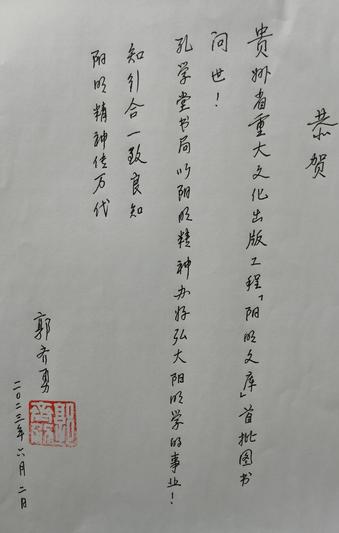 恭贺
贵州省重大文化出版工程「阳明文库」首批图书
问世！
孔学堂书局以阳明精神办好弘大阳明学的事业！
知行合一致良知
阳明精神传万代
郭齐勇
二〇二三年六月二日